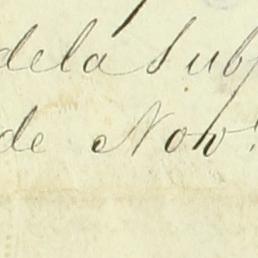 de la Sub
de Nov.